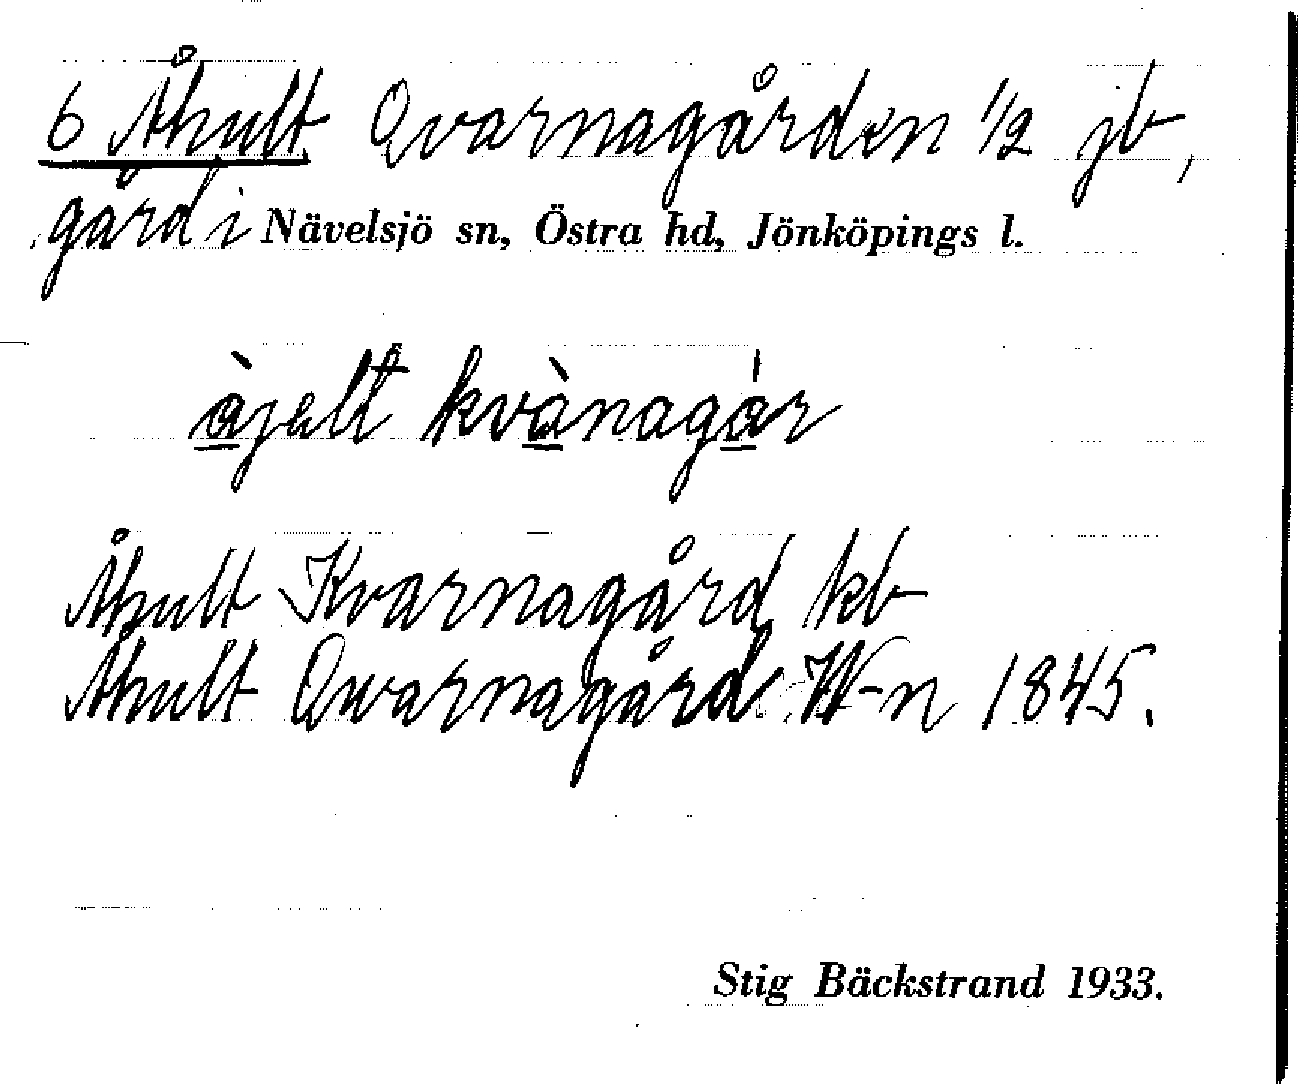 6 Åhult Qvarnagården 1/2 jb,
gård i Nävelsjö sn, Östra hd, Jönköpings l.
àjelt kvànagár
Åhult Kvarnagård kb
Åhult Qwarnagård W-n 1845.
Stig Bäckstrand 1933.